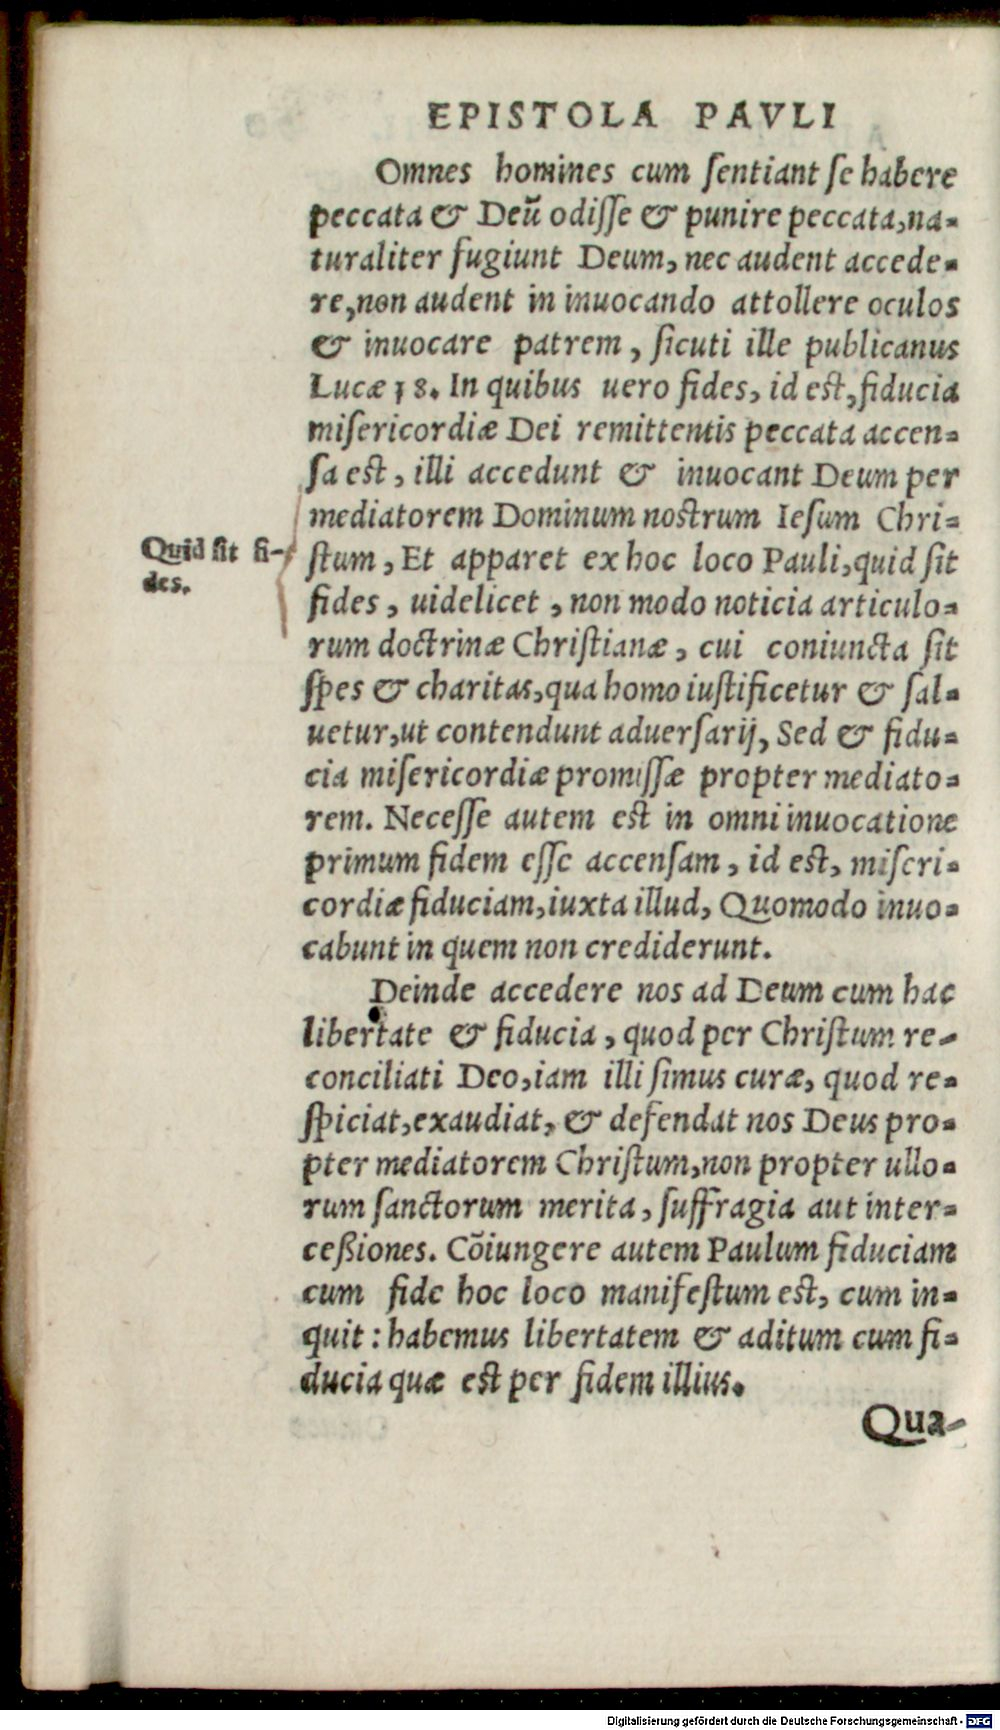 EPISTOLA PAVLI
Omnes homines cum ſentiant ſe habere
peccata & Deū odiſſe & punire peccata, na-
turaliter fugiunt Deum, nec audent accede-
re, non audent in inuocando attollere oculos
& inuocare patrem, ſicuti ille publicanus
Lucæ 18. In quibus uero fides, id eſt, fiducia
miſericordiæ Dei remittentis peccata accen-
ſa eſt, illi accedunt & inuocant Deum per
mediatorem Dominum noſtrum Ieſum Chri-
Quid ſit fi-
des.
ſtum, Et apparet ex hoc loco Pauli, quid ſit
fides, uidelicet, non modo noticia articulo-
rum doctrinæ Chriſtianæ, cui coniuncta ſit
ſpes & charitas, qua homo iuſtificetur & ſal-
uetur, ut contendunt aduerſarij, Sed & fidu-
cia miſericordiæ promiſſæ propter mediato-
rem. Neceſſe autem eſt in omni inuocatione
primum fidem eſſe accenſam, id eſt, miſeri-
cordiæ fiduciam, iuxta illud, Quomodo inuo-
cabunt in quem non crediderunt.
Deinde accedere nos ad Deum cum hac
libertate & fiducia, quod per Chriſtum re-
conciliati Deo, iam illi ſimus curæ, quod re-
ſpiciat, exaudiat, & defendat nos Deus pro-
pter mediatorem Chriſtum, non propter ullo-
rum ſanctorum merita, ſuffragia aut inter-
ceßiones. Cōiungere autem Paulum fiduciam
cum fide hoc loco manifeſtum eſt, cum in-
quit: habemus libertatem & aditum cum fi-
ducia quæ eſt per fidem illius.
Qua-
Digitalisierung gefördert durch die Deutsche Forschungsgemeinschaft - DFG